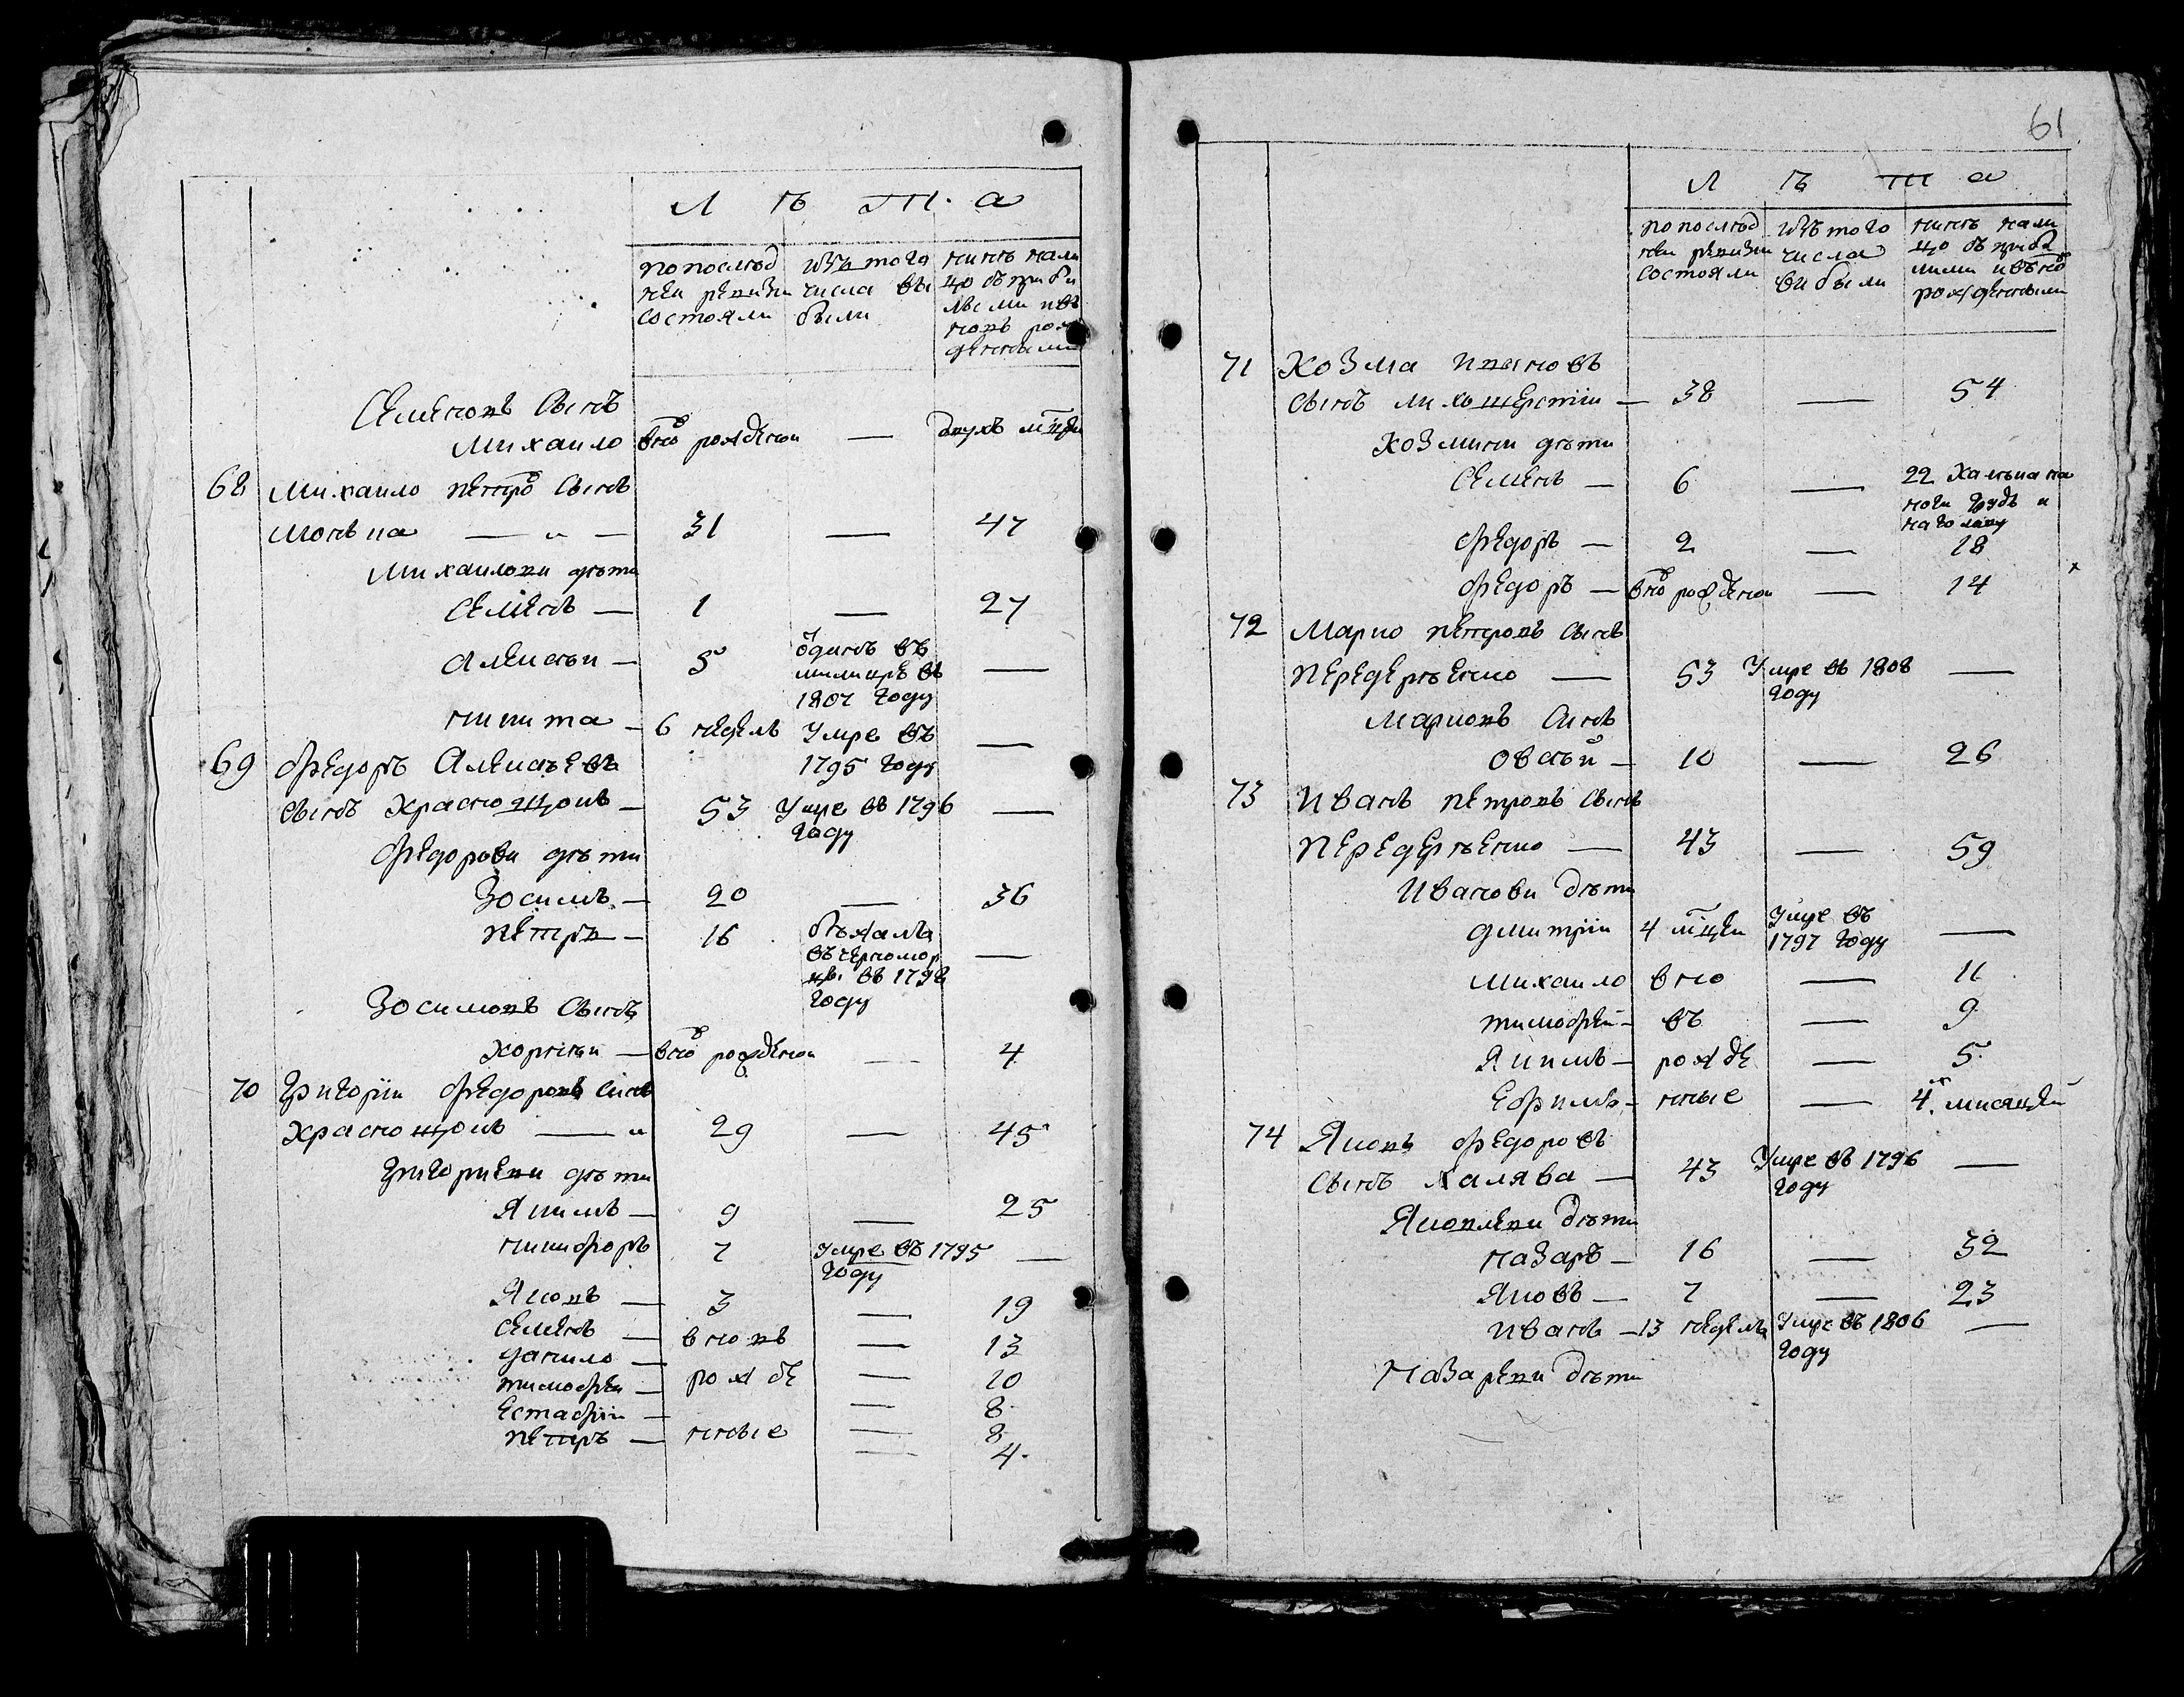 Л Ѣ Т А
по последней ревизии состояли
изъ того числа выбыли
ныне налицо съ прибылыми и вновь рожденными
Семеновъ сынъ
Михаило вно рожденои — двухъ мцей
68 Михаило Петро сынъ
31 — 47
Михаилови дѣти
Семенъ — 1 — 27
Алексѣй — 5 одинъ въ милицiе въ 1807 году —
Никита — 6 недель Умре въ 1795 году —
69 Федоръ Алексѣевъ
сынъ Краснощокъ — 53 Умре въ 1796 году —
Федорови дѣти
Зосимъ — 20 — 36
Петръ — 16 бѣжалъ въ черномор въ 1798 году —
Зосимовъ сынъ
Корнѣй — вно рожденои — 4
70 Григорiй Федоровъ синъ
Краснощокъ — 29 — 45
Григориеви дѣти
Якимъ — 9 — 25
Никифоръ 7 Умре въ 1795 году —
Яковъ — 3 — 19
Семенъ — вновь — 13
Данило — рожде — 10
Тимофей — — 8
Естафiй — нные — 8
Петръ — — 4
61
Л Ѣ Т А
по послед ней ревизии состояли
изъ того числа вибыли
нынѣ нали цо съ приб лими и вно рожденными
71 Козма
сынъ — 38 — 54
Козмини дѣти
Семенъ — 6 — 22
Федоръ — 2 — 18
Федоръ — вно рожденои — 14
72 Марко Петровъ сынъ
Передерѣенко — 53 Умре въ 1808 году —
Марковъ синъ
Овсѣй — 10 — 26
73 Иванъ Петровъ сынъ
Передерѣенко — 43 — 59
Иванови дѣти
Дмитрiй 4 мцей Умре въ 1797 году —
Михаило вно — 11
Тимофей — въ — 9
Якимъ — рожде — 5
Ефимъ — нные — 4 мисяцей
74 Яковъ Федоровъ
сынъ Халява — 43 Умре въ 1796 году —
Яковлеви дѣти
Назаръ — 16 — 32
Яковъ — 7 — 23
Иванъ — 13 недель Умре въ 1806 году —
Назареви дѣти